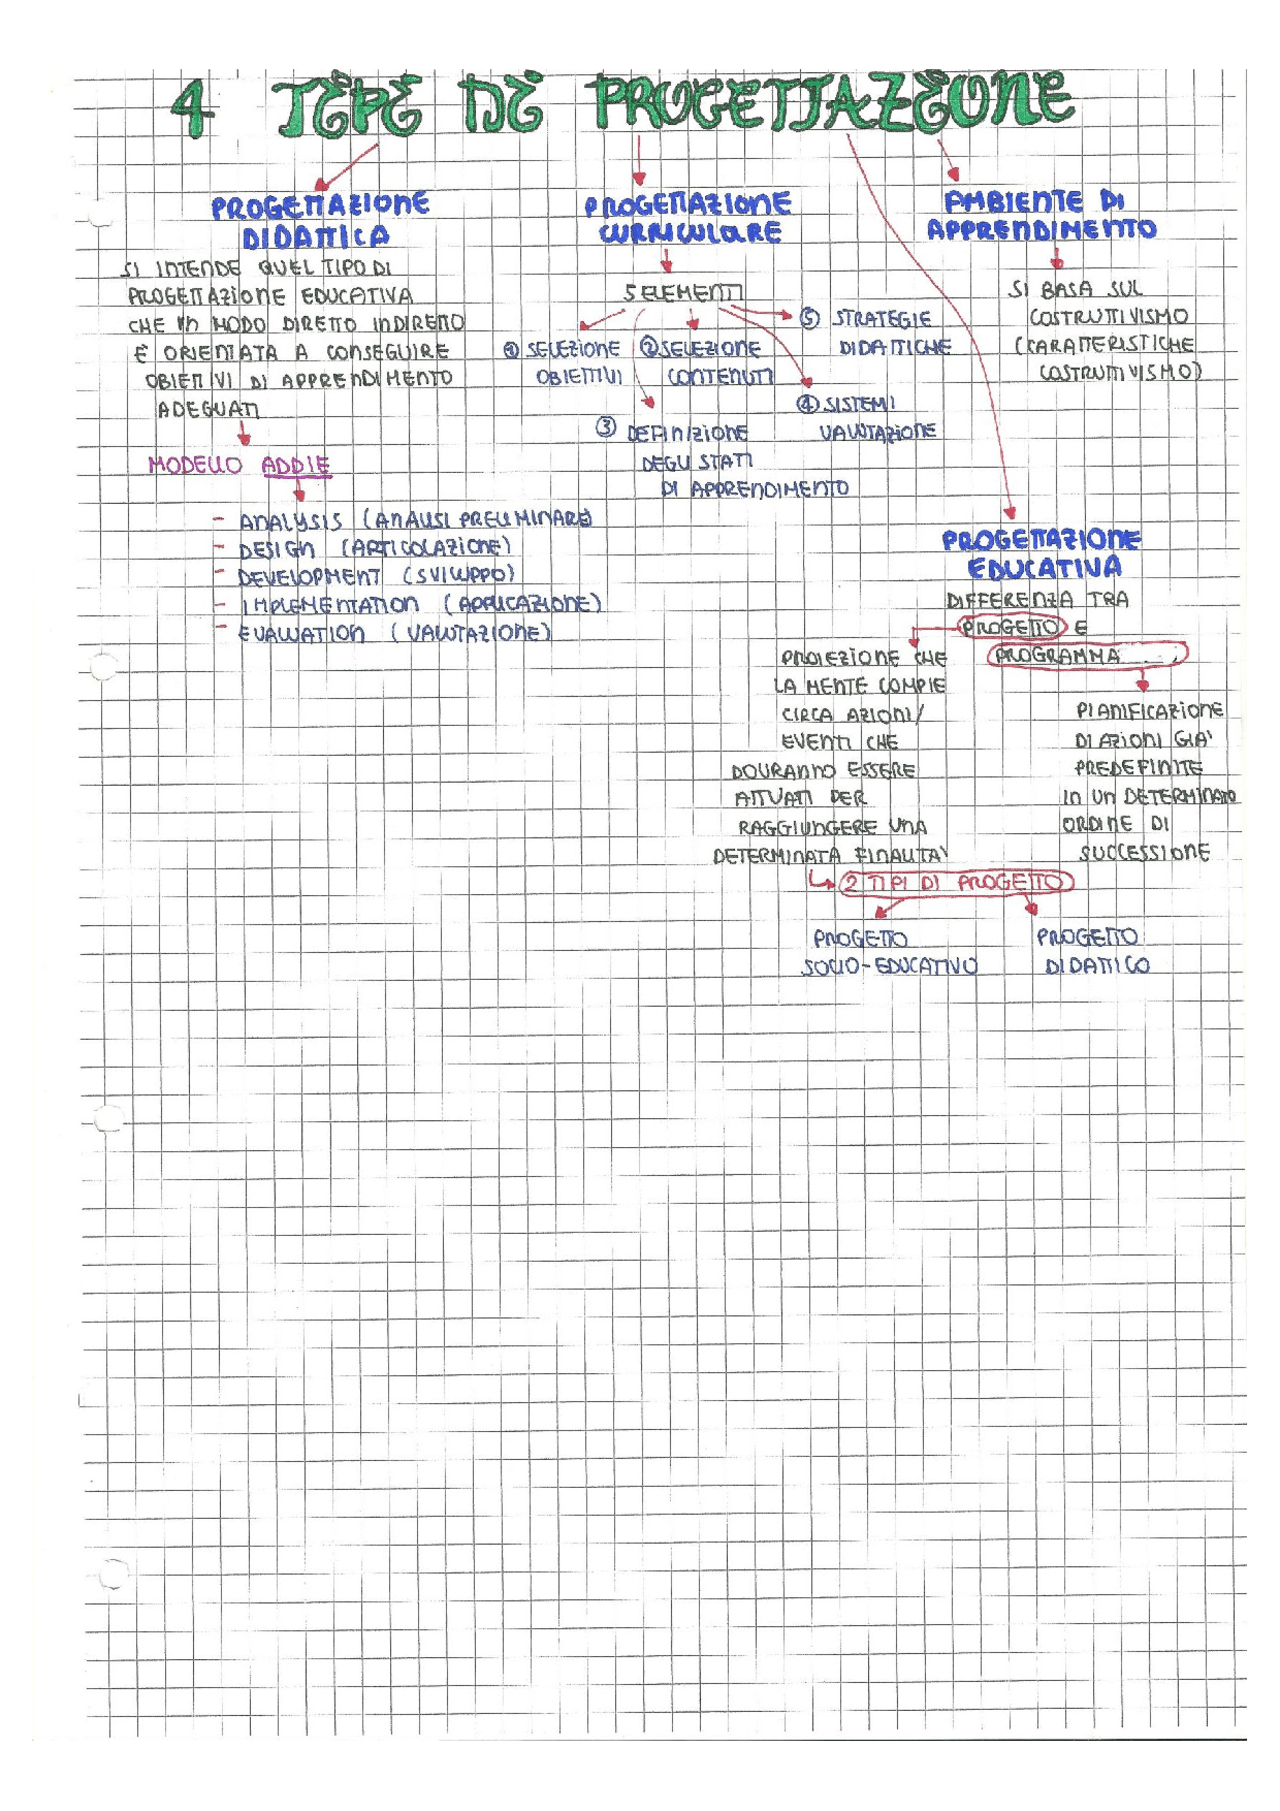 4 TIPI DI PROGETTAZIONE
PROGETTAZIONE
DIDATTICA
SI INTENDE QUEL TIPO DI
PROGETTAZIONE EDUCATIVA
CHE IN MODO DIRETTO INDIRETTO
È ORIENTATA A CONSEGUIRE
OBIETTIVI DI APPRENDIMENTO
ADEGUATI
MODELLO ADDIE
- ANALYSIS (ANALISI PRELIMINARE)
- DESIGN (ARTICOLAZIONE)
- DEVELOPMENT (SVILUPPO)
- IMPLEMENTATION (APPLICAZIONE)
- EVALUATION (VALUTAZIONE)
PROGETTAZIONE
CURRICULARE
5 ELEMENTI
① SELEZIONE
OBIETTIVI
② SELEZIONE
CONTENUTI
③ DEFINIZIONE
DEGLI STATI
DI APPRENDIMENTO
④ SISTEMI
VALUTAZIONE
⑤ STRATEGIE
DIDATTICHE
AMBIENTE DI
APPRENDIMENTO
SI BASA SUL
COSTRUTTIVISMO
(CARATTERISTICHE
COSTRUTTIVISMO)
PROGETTAZIONE
EDUCATIVA
DIFFERENZA TRA
PROGETTO E
PROGRAMMA
PROIEZIONE CHE
LA MENTE COMPIE
CIRCA AZIONI/
EVENTI CHE
DOVRANNO ESSERE
ATTUATI PER
RAGGIUNGERE UNA
DETERMINATA FINALITA'
PIANIFICAZIONE
DI AZIONI GIA'
PREDEFINITE
IN UN DETERMINATO
ORDINE DI
SUCCESSIONE
2 TIPI DI PROGETTO
PROGETTO
SOCIO-EDUCATIVO
PROGETTO
DIDATTICO